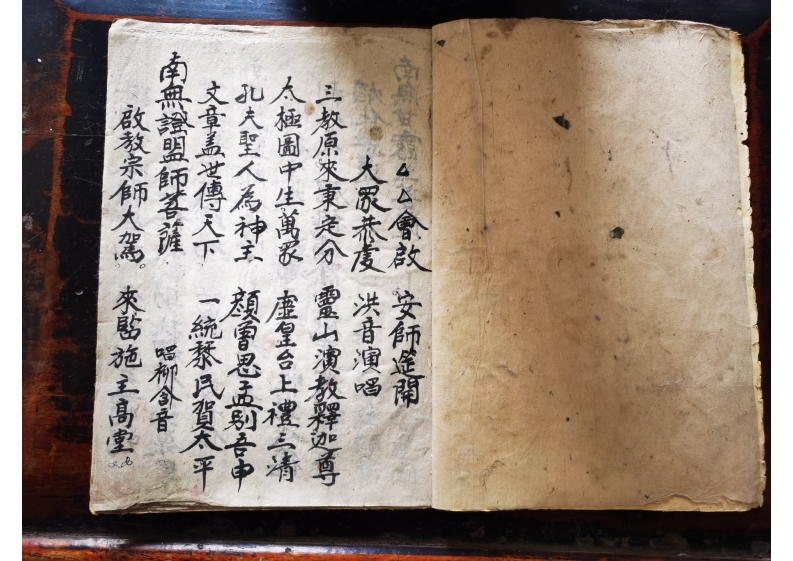 厶厶會啟 安師筵開
大眾恭虔 洪音演唱
三教原來東定分 靈山演教釋迦尊
太極圖中生萬象 虛皇台上禮三清
孔夫聖人為神主 顏曾思孟別吾申
文章盖世傳天下 一統黎民賀太平
南無證盟師菩薩 唱柳金音
啟教宗師大駕。 來臨施主高堂